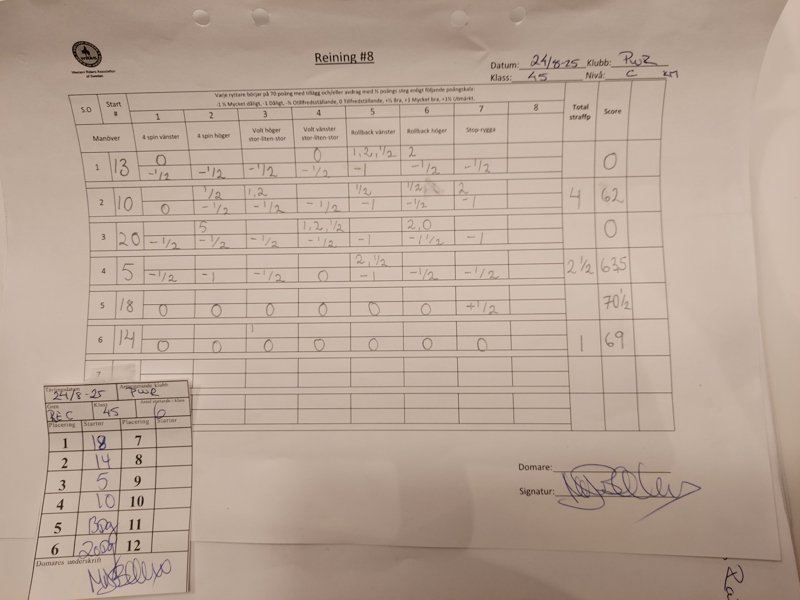 Reining #8
Western Riders Association
of Sweden
Datum: 24/8-25 Klubb: PWR
Klass: 45 Nivå: C KM
Varje ryttare börjar på 70 poäng med tillägg och/eller avdrag med ½ poängs steg enligt följande poängskala:
-1 ½ Mycket dåligt, -1 Dåligt, -½ Otillfredsställande, 0 Tillfredsställande, +½ Bra, +1 Mycket bra, +1½ Utmärkt.
S.O Start # 1 2 3 4 5 6 7 8 Total straffp Score
Manöver 4 spin vänster 4 spin höger Volt höger stor-liten-stor Volt vänster stor-liten-stor Rollback vänster Rollback höger Stop-rygga
0 0 1,2,½ 2
1 13 -½ -½ -½ -½ -1 -½ -½ 0
½ 1,2 ½ ½ 2
2 10 0 -½ -½ -½ -1 -½ -1 4 62
5 1,2,½ 2,0
3 20 -½ -½ -½ -½ -1 -1½ -1 0
2,½
4 5 -½ -1 -½ 0 -1 -½ -½ 2½ 63,5
5 18 0 0 0 0 0 0 +½ 70½
1
6 14 0 0 0 0 0 0 0 1 69
7
Domare:
Signatur:
24/8-25 PWR
Gren Klass Antal startande i klass
RE C 45 6
Placering Startnr Placering Startnr
1 18 7
2 14 8
3 5 9
4 10 10
5 11
6 12
Domares underskrift